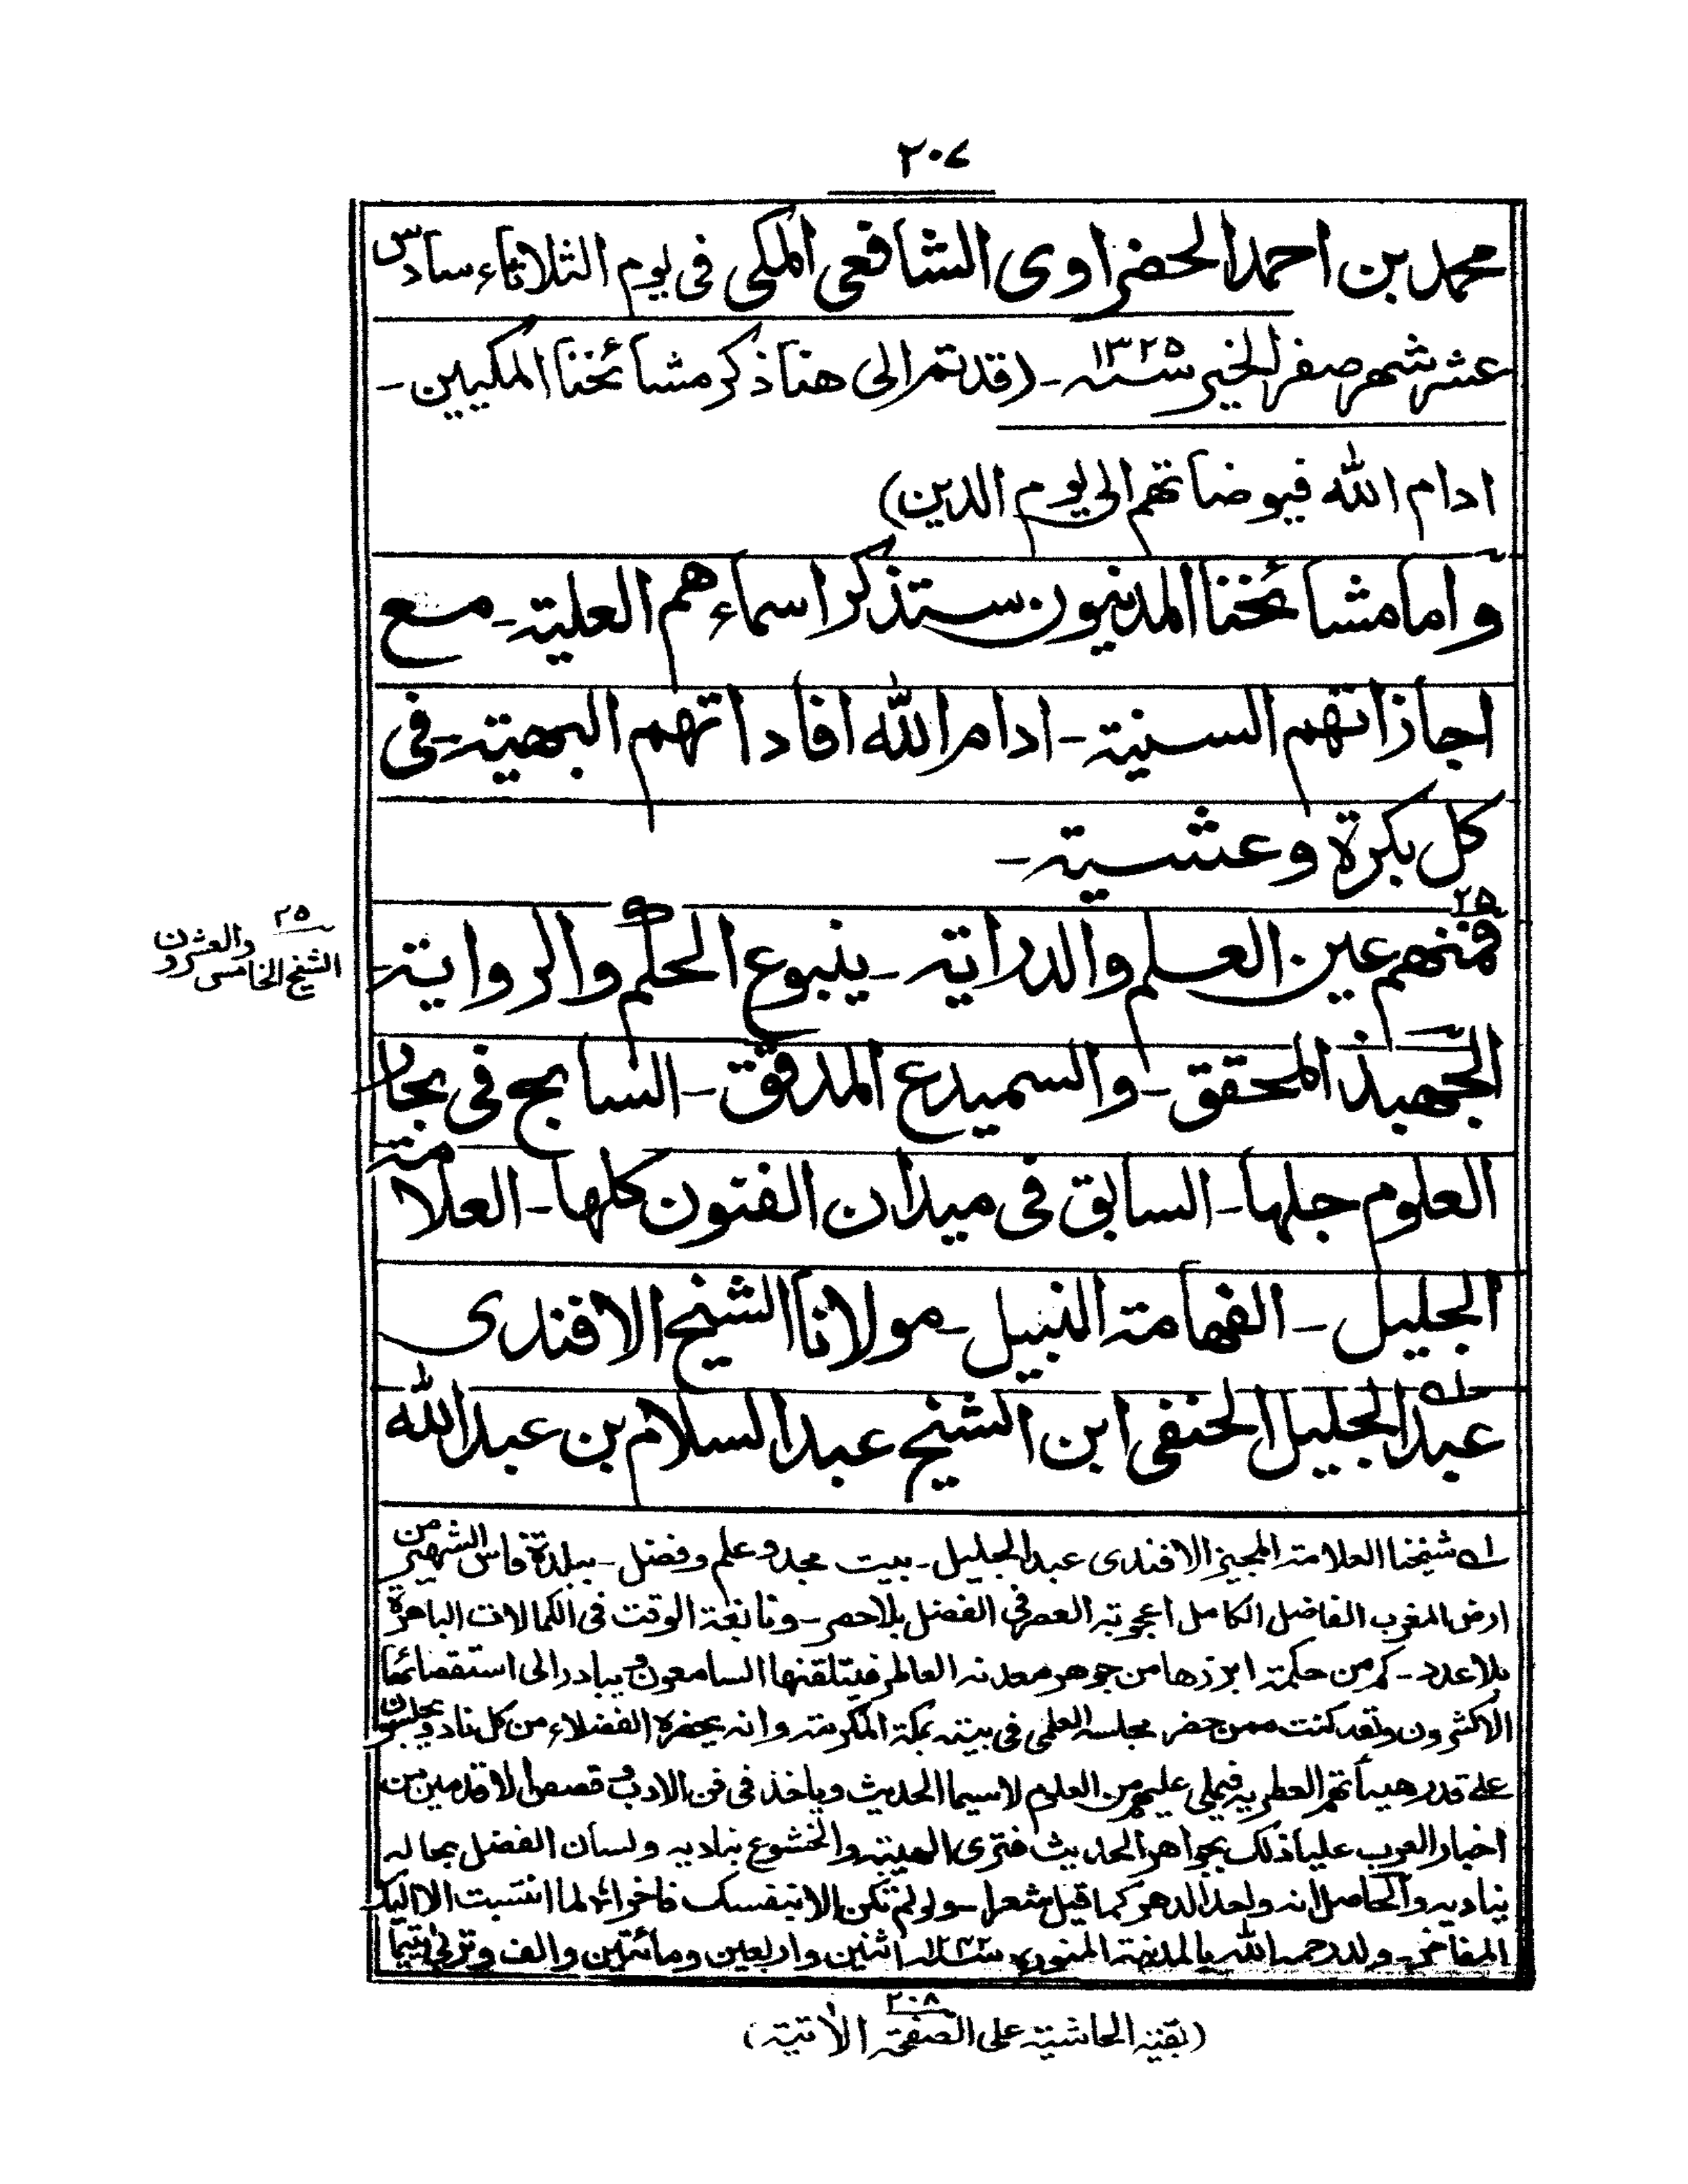 ٢٠٧
محمد بن احمد الحضراوى الشافعى المكى فى يوم الثلاثاء سادس
عشر شهر صفر الخير سنه ١٣٢٥ - (قد تم الى هنا ذكر مشائخنا المكيين -
ادام الله فيوضاتهم الى يوم الدين)
واما مشائخنا المدنيون ستذكر اسماءهم العلية - مع
اجازاتهم السنية - ادام الله افاداتهم البهية - فى
كل بكرة وعشية -
٢٥
فمنهم عين العلم والدراية - ينبوع الحكم والرواية -
٢٥
الشيخ الخامس والعشرون
الجهبذ المحقق - والسميدع المدقق - السابح فى بحار
العلوم جلها - السابق فى ميدان الفنون كلها - العلامة
الجليل - الفهامة النبيل - مولانا الشيخ الافندى
عبد الجليل الحنفى ابن الشيخ عبد السلام بن عبد الله
له شيخنا العلامة المجيز الافندى عبد الجليل - بيت مجد و علم وفضل - ببلدة فاس الشهير من
ارض المغرب الفاضل الكامل اعجوبة العصر فى الفضل بلا حصر - ونابغة الوقت فى الكمالات الباهرة
بلا عدد - كم من حكمة ابرزها من جوهر معدنه العالم فيتلقنها السامعون ويبادر الى استقصائها
الاكثرون ولقد كنت ممن حضر مجلسه العلمى فى بيته بمكة المكرمة وانه يحضره الفضلاء من كل ناد ويجلسون
على قدر هيأتهم العطرية فيملى عليهم من العلوم لاسيما الحديث وياخذ فى فن الادب وقصص الاقدمين من
اخبار العرب عليا ذلك بجواهر الحديث فترى الهيبة والخشوع بناديه ولسان الفضل بماله
يناديه والحاصل انه واحد الدهر كما قيل شعرا - ولو لم تكن الا بنفسك فاخرا لما انتسبت الا اليك
المفاخر - ولد رحمه الله بالمدينة المنورة سنه ١٢٤٢ اثنين واربعين ومائتين والف وتربى يتيما
(بقية الحاشية على الصفحة ٢٠٨ الآتية)